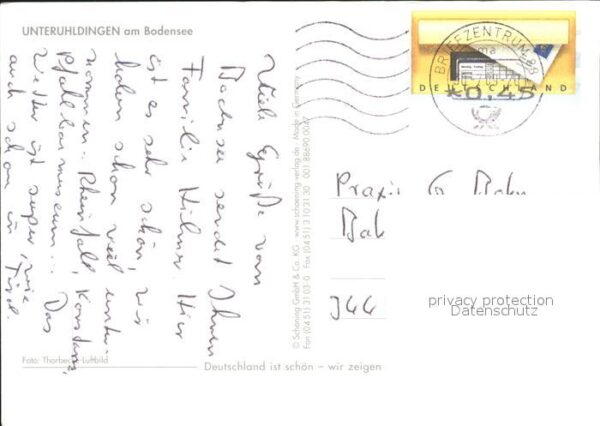 UNTERUHLDINGEN am Bodensee
Viele Grüße vom
Bodensee sendet Ihnen
Familie Hilmer. Hier
ist es sehr schön, wir
haben schon viel unter-
nommen: Rheinfall, Konstanz,
Pfahlbaumuseum... Das
Wetter ist super, wie
auch schon in Tirol.
Foto: Thorbecke-Luftbild
Deutschland ist schön – wir zeigen
© Schöning GmbH & Co. KG · www.schoening-verlag.de · Made in Germany
Fon (04 51) 31 03-0 · Fax (04 51) 3 10 31 30 · 001 88690 0047
BRIEFZENTRUM 88
DEUTSCHLAND
*0,45
Praxis
privacy protection
Datenschutz